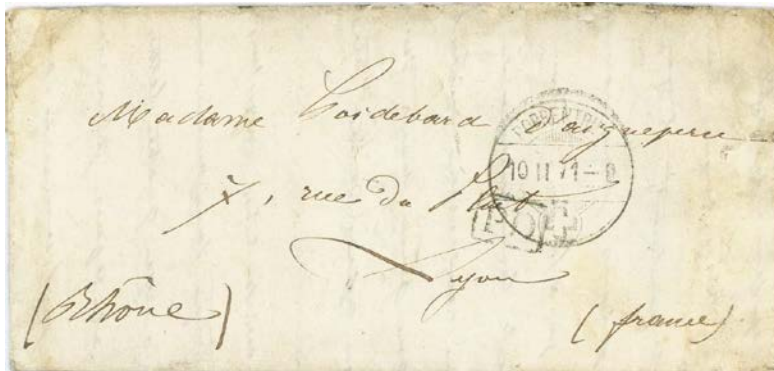 Madame Poidebard d'aigueperse
7, rue du Plat
Lyon
(Rhône) (france)
PORRENTRUY
10 II 71
PD